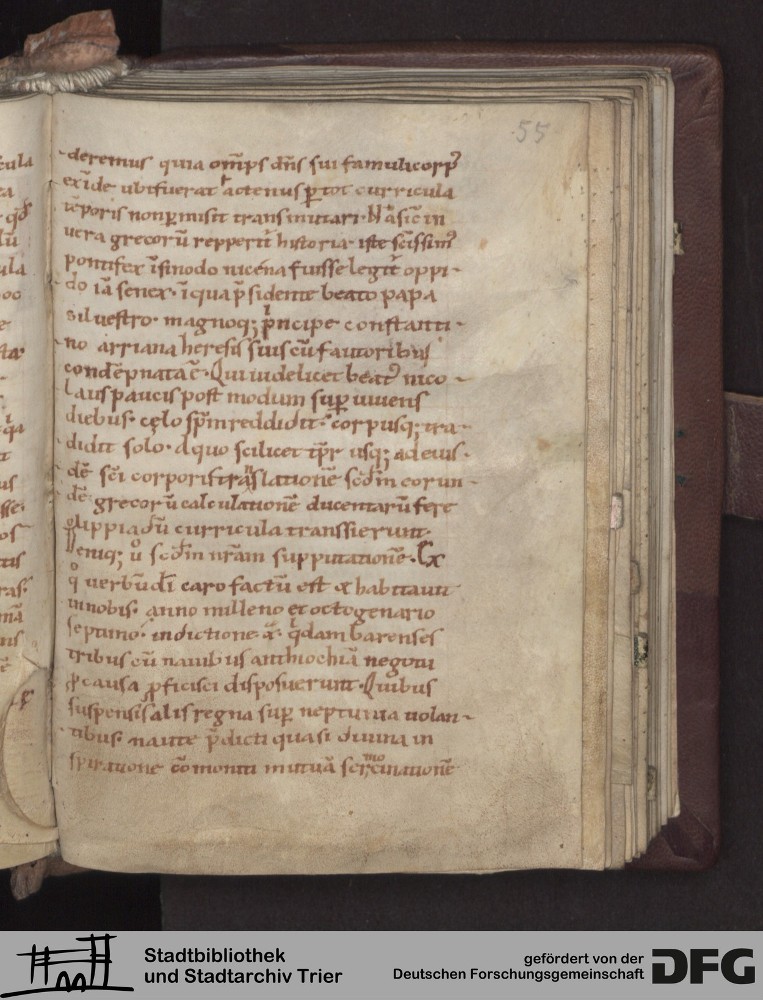 55
deremus quia om̅ps dn̅s sui famuli corpꝰ
exīde ubi fuerat actenus ꝑ tot curricula
tēporis non ꝑmisit transmutari. Nā sic in
uera grecorū repperit̄ historia iste sc̅issimꝰ
pontifex ī sinodo nicena fuisse legit̄ oppi-
do iā senex. ī qua p̄sidente beato papa
siluestro. magnoq; pͥncipe constanti-
no arriana heresis suis cū fautoribus
condēpnata ē. Qui uidelicet beatꝰ nico-
laus paucis post modum suꝑ uiuens
diebus. cęlo sp̅m reddidit. corpusq; tra-
didit solo. a quo scilicet tp̅r usq; ad eius-
dē sc̅i corporis trāslationē scd̅m eorun-
dē grecorū calculationē ducentarū fere
olippiadū curricula transsierunt.
Deniq; uͦ scd̅m nr̅am supputationē. Ex
qͦ uerbū dī caro factū est & habitauit
in nobis. anno milleno et octogenario
septimo. indictione x. qͥdam barenses
tribus cū nauibus anthiochiā negotii
causa ꝓficisci disposuerunt. Quibus
suspensis alis regna suꝑ neptunia uolan-
tibus. naute p̄dicti quasi diuina in
spiratione cōmoniti mutuā sermocinationē
Stadtbibliothek
und Stadtarchiv Trier
gefördert von der
Deutschen Forschungsgemeinschaft
DFG